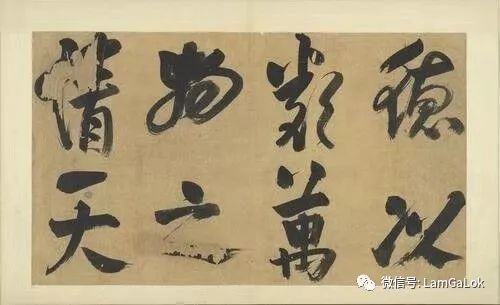 德以
類萬
物之
情天
微信号: LamGaLok